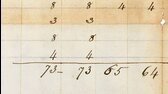 8 8 4 4
3 3
8 8
4 4
73- 73 65 64